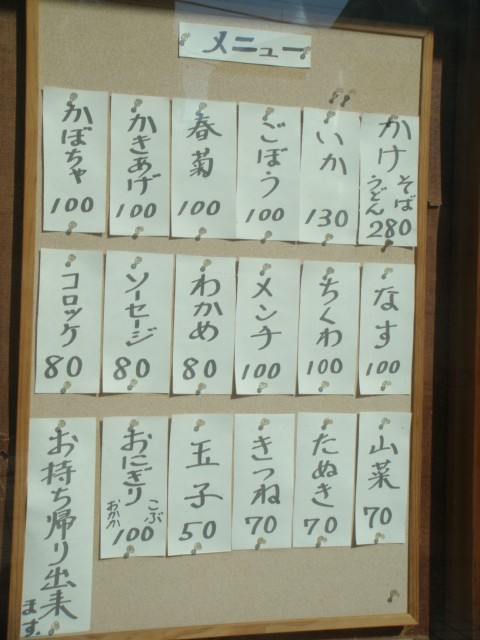 メニュー
かけ そば うどん 280
いか 130
ごぼう 100
春菊 100
かきあげ 100
かぼちゃ 100
なす 100
ちくわ 100
メンチ 100
わかめ 80
ソーセージ 80
コロッケ 80
山菜 70
たぬき 70
きつね 70
玉子 50
おにぎり こぶ おかか 100
お持ち帰り出来ます